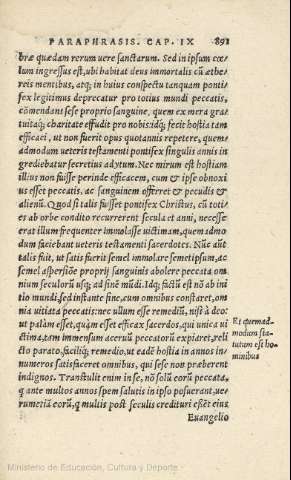 PARAPHRASIS. CAP. IX 891
bræ quædam rerum uere sanctarum. Sed in ipsum cœ-
lum ingressus est, ubi habitat deus immortalis cū æthe-
reis mentibus, atq; in huius conspectu tanquam ponti-
fex legitimus deprecatur pro totius mundi peccatis,
cōmendans sese proprio sanguine, quem ex mera gra-
tuitaq; charitate effudit pro nobis: idq; fecit hostia tam
efficaci, ut non fuerit opus quotannis repetere, quem-
admodum ueteris testamenti pontifex singulis annis in
grediebatur secretius adytum. Nec mirum est hostiam
illius non fuisse perinde efficacem, cum & ipse obnoxi
us esset peccatis, ac sanguinem efferret & pecudis &
alienū. Quod si talis fuisset pontifex Christus, cū toti-
es ab orbe condito recurrerent secula et anni, necesse
erat illum frequenter immolasse uictimam, quemadmo
dum faciebant ueteris testamenti sacerdotes. Nūc aūt
talis fuit, ut satis fuerit semel immolare semetipsum, ac
semel aspersiōe proprij sanguinis abolere peccata om
nium seculorū usq; ad finē mūdi. Idq; factū est nō ab ini
tio mundi, sed instante fine, cum omnibus constaret, om
nia uitiata peccatis: nec ullum esse remediū, nisi à deo:
ut palàm esset, quàm esset efficax sacerdos, qui unica ui
ctima, tam immensum aceruū peccatorū expiaret, reli
cto parato, faciliq; remedio, ut eadē hostia in annos in-
numeros satisfaceret omnibus, qui sese non præberent
indignos. Transtulit enim in se, nō solū eorū peccata,
q ante multos annos spem salutis in ipso posuerant, ue-
rumetiā eorū, q multis post seculis credituri essēt eius
Euangelio
Et quemad-
modum sta-
tutum est ho-
minibus
Ministerio de Educación, Cultura y Deporte